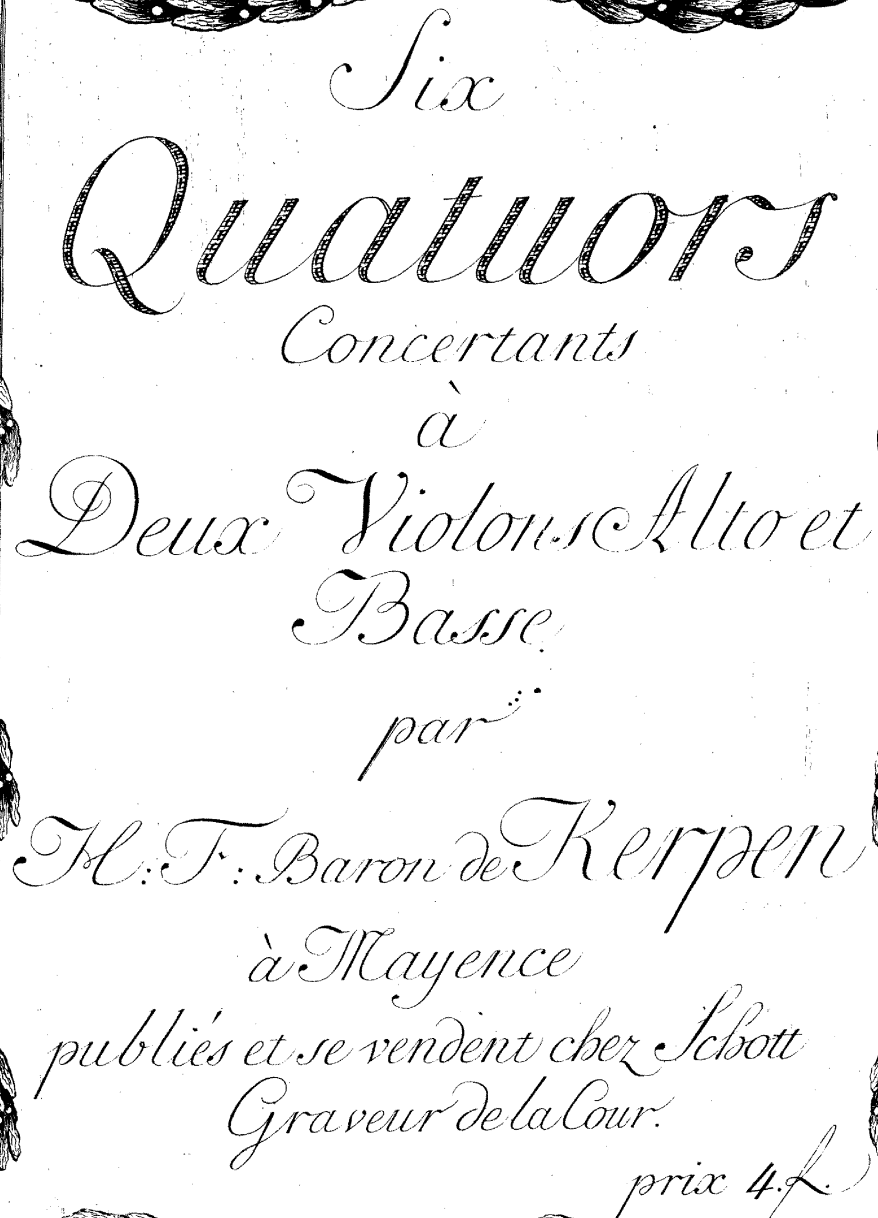 Six
Quatuors
Concertants
à
Deux Violons Alto et
Basse
par
H: F: Baron de Kerpen
à Mayence
publiés et se vendent chez Schott
Graveur de la Cour.
prix 4.f.